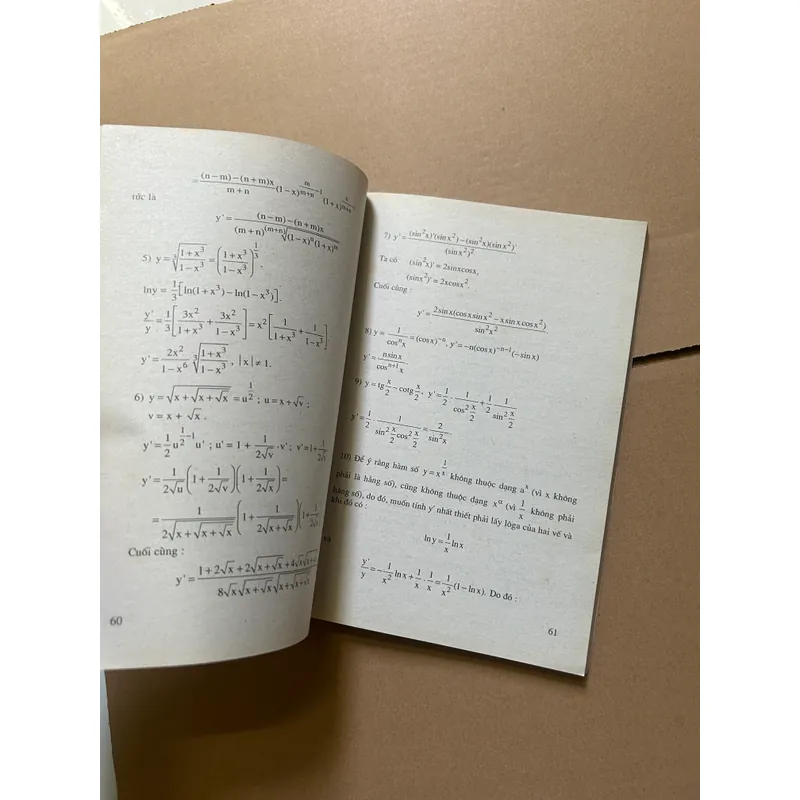 = \frac{(n-m)-(n+m)x}{m+n}(1-x)^{\frac{m}{m+n}-1}
tức là
y' = \frac{(n-m)-(n+m)x}{(m+n)\sqrt[(m+n)]{(1-x)^n(1+x)^m}}
5) y = \sqrt[3]{\frac{1+x^3}{1-x^3}} = \left(\frac{1+x^3}{1-x^3}\right)^{\frac{1}{3}}.
lny = \frac{1}{3}[ln(1+x^3)-ln(1-x^3)].
\frac{y'}{y} = \frac{1}{3}\left[\frac{3x^2}{1+x^3}+\frac{3x^2}{1-x^3}\right] = x^2\left[\frac{1}{1+x^3}+\frac{1}{1-x^3}\right].
y' = \frac{2x^2}{1-x^6}\sqrt[3]{\frac{1+x^3}{1-x^3}}, |x| ≠ 1.
6) y = \sqrt{x+\sqrt{x+\sqrt{x}}} = u^{\frac{1}{2}} ; u = x+\sqrt{v} ;
v = x + \sqrt{x}.
y' = \frac{1}{2}u^{\frac{1}{2}-1}u' ; u' = 1 + \frac{1}{2\sqrt{v}}·v' ; v' = 1+
y' = \frac{1}{2\sqrt{u}}\left(1+\frac{1}{2\sqrt{v}}\right)\left(1+\frac{1}{2\sqrt{x}}\right) =
= \frac{1}{2\sqrt{x+\sqrt{x+\sqrt{x}}}}\left(1+\frac{1}{2\sqrt{x+\sqrt{x}}}\right)
Cuối cùng :
y' = \frac{1+2\sqrt{x}+2\sqrt{x+\sqrt{x}}+4\sqrt{x}}{8\sqrt{x}\sqrt{x+\sqrt{x}}\sqrt{x+\sqrt{x+\sqrt{x}}}}
60
7) y' = \frac{(sin^2x)'(sinx^2)-(sin^2x)(sinx^2)'}{(sinx^2)^2}.
Ta có (sin^2x)' = 2sinxcosx,
(sinx^2)' = 2xcosx^2.
Cuối cùng :
y' = \frac{2sinx(cosxsinx^2 - xsinxcosx^2)}{sin^2x^2}.
8) y = \frac{1}{cos^nx} = (cosx)^{-n}, y' = -n(cosx)^{-n-1}(-sinx)
y' = \frac{nsinx}{cos^{n+1}x}.
9) y = tg\frac{x}{2} - cotg\frac{x}{2}, y' = \frac{1}{2}·\frac{1}{cos^2\frac{x}{2}}+\frac{1}{2}\frac{1}{sin^2\frac{x}{2}}
y' = \frac{1}{2}·\frac{1}{sin^2\frac{x}{2}cos^2\frac{x}{2}} = \frac{2}{sin^2x}.
10) Để ý rằng hàm số y = x^{\frac{1}{x}} không thuộc dạng a^x (vì x không
phải là hằng số), cũng không thuộc dạng x^α (vì \frac{1}{x} không phải
hằng số), do đó, muốn tính y' nhất thiết phải lấy lôga của hai vế và
khi đó có :
lny = \frac{1}{x}lnx
và
\frac{y'}{y} = -\frac{1}{x^2}lnx+\frac{1}{x}·\frac{1}{x} = \frac{1}{x^2}(1-lnx). Do đó :
61